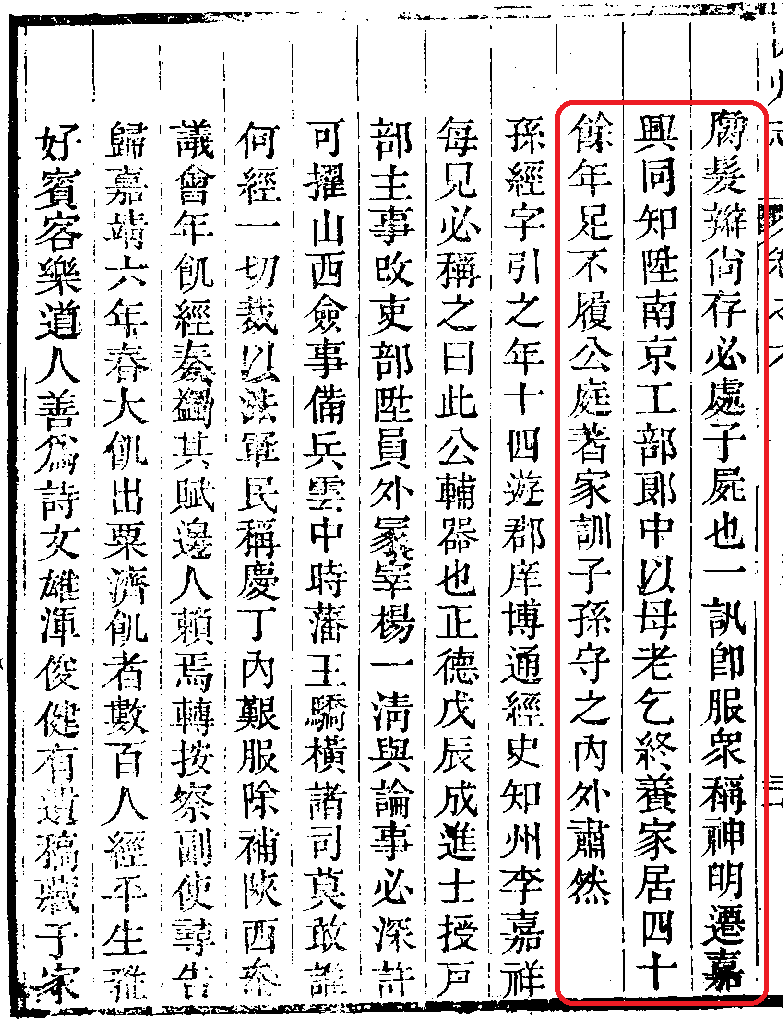 膚髮辮尚存必處子屍也一訊卽服衆稱神明遷嘉
興同知陞南京工部郞中以母老乞終養家居四十
餘年足不履公庭著家訓子孫守之內外肅然
孫經字引之年十四遊郡庠博通經史知州李嘉祥
每見必稱之曰此公輔器也正德戊辰成進士授戸
部主事改吏部陞員外冡宰楊一淸與論事必深許
可擢山西僉事備兵雲中時藩王驕橫諸司莫敢誰
何經一切裁以法軍民稱慶丁內艱服除補陝西叅
議會年飢經奏蠲其賦邊人賴焉轉按察副使尋告
歸嘉靖六年春大飢出粟濟飢者數百人經平生雅
好賓客樂道人善爲詩文雄渾俊健有遺稿藏于家